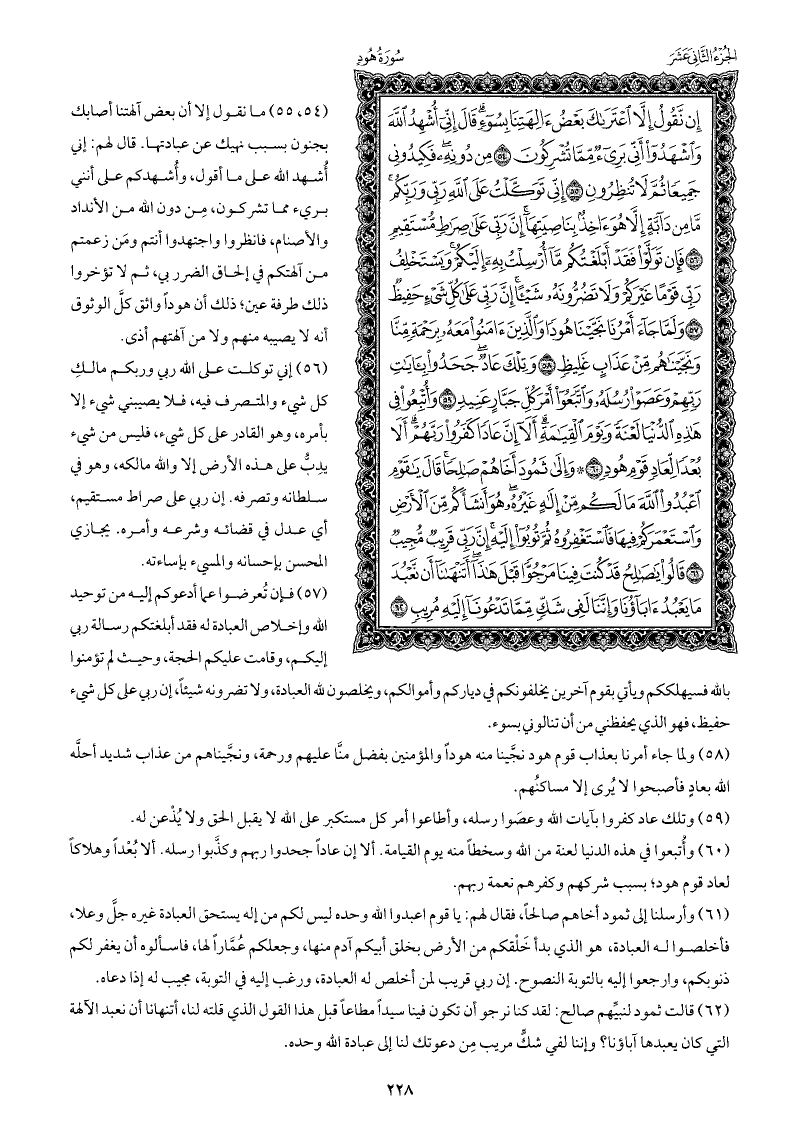 الجزء الثاني عشر
سورة هود
إِن نَّقُولُ إِلَّا ٱعْتَرَىٰكَ بَعْضُ ءَالِهَتِنَا بِسُوٓءٍۗ قَالَ إِنِّيٓ أُشْهِدُ ٱللَّهَ
وَٱشْهَدُوٓاْ أَنِّي بَرِيٓءٌ مِّمَّا تُشْرِكُونَ ٥٤ مِن دُونِهِۦۖ فَكِيدُونِي
جَمِيعًا ثُمَّ لَا تُنظِرُونِ ٥٥ إِنِّي تَوَكَّلْتُ عَلَى ٱللَّهِ رَبِّي وَرَبِّكُمۚ
مَّا مِن دَآبَّةٍ إِلَّا هُوَ ءَاخِذُۢ بِنَاصِيَتِهَآۚ إِنَّ رَبِّي عَلَىٰ صِرَٰطٍ مُّسْتَقِيمٍ
٥٦ فَإِن تَوَلَّوْاْ فَقَدْ أَبْلَغْتُكُم مَّآ أُرْسِلْتُ بِهِۦٓ إِلَيْكُمْۚ وَيَسْتَخْلِفُ
رَبِّي قَوْمًا غَيْرَكُمْ وَلَا تَضُرُّونَهُۥ شَيْـًٔاۚ إِنَّ رَبِّي عَلَىٰ كُلِّ شَيْءٍ حَفِيظٌ
٥٧ وَلَمَّا جَآءَ أَمْرُنَا نَجَّيْنَا هُودًا وَٱلَّذِينَ ءَامَنُواْ مَعَهُۥ بِرَحْمَةٍ مِّنَّا
وَنَجَّيْنَٰهُم مِّنْ عَذَابٍ غَلِيظٍ ٥٨ وَتِلْكَ عَادٌۖ جَحَدُواْ بِـَٔايَٰتِ
رَبِّهِمْ وَعَصَوْاْ رُسُلَهُۥ وَٱتَّبَعُوٓاْ أَمْرَ كُلِّ جَبَّارٍ عَنِيدٍ ٥٩ وَأُتْبِعُواْ فِي
هَٰذِهِ ٱلدُّنْيَا لَعْنَةً وَيَوْمَ ٱلْقِيَٰمَةِۗ أَلَآ إِنَّ عَادًا كَفَرُواْ رَبَّهُمْۗ أَلَا
بُعْدًا لِّعَادٍ قَوْمِ هُودٍ ٦٠ ۞ وَإِلَىٰ ثَمُودَ أَخَاهُمْ صَٰلِحًاۚ قَالَ يَٰقَوْمِ
ٱعْبُدُواْ ٱللَّهَ مَا لَكُم مِّنْ إِلَٰهٍ غَيْرُهُۥۖ هُوَ أَنشَأَكُم مِّنَ ٱلْأَرْضِ
وَٱسْتَعْمَرَكُمْ فِيهَا فَٱسْتَغْفِرُوهُ ثُمَّ تُوبُوٓاْ إِلَيْهِۚ إِنَّ رَبِّي قَرِيبٌ مُّجِيبٌ
٦١ قَالُواْ يَٰصَٰلِحُ قَدْ كُنتَ فِينَا مَرْجُوًّا قَبْلَ هَٰذَآۖ أَتَنْهَىٰنَآ أَن نَّعْبُدَ
مَا يَعْبُدُ ءَابَآؤُنَا وَإِنَّنَا لَفِي شَكٍّ مِّمَّا تَدْعُونَآ إِلَيْهِ مُرِيبٍ ٦٢
(٥٤، ٥٥) ما نقول إلا أن بعض آلهتنا أصابك
بجنون بسبب نهيك عن عبادتها. قال لهم: إني
أُشهد الله على ما أقول، وأُشهدكم على أنني
بريء مما تشركون، مِن دون الله من الأنداد
والأصنام، فانظروا واجتهدوا أنتم ومَن زعمتم
من آلهتكم في إلحاق الضرر بي، ثم لا تؤخروا
ذلك طرفة عين؛ ذلك أن هوداً واثق كلَّ الوثوق
أنه لا يصيبه منهم ولا من آلهتهم أذى.
(٥٦) إني توكلت على الله ربي وربكم مالكِ
كل شيء والمتصرف فيه، فلا يصيبني شيء إلا
بأمره، وهو القادر على كل شيء، فليس من شيء
يدِبُّ على هذه الأرض إلا والله مالكه، وهو في
سلطانه وتصرفه. إن ربي على صراط مستقيم،
أي عدل في قضائه وشرعه وأمره. يجازي
المحسن بإحسانه والمسيء بإساءته.
(٥٧) فإن تُعرضوا عما أدعوكم إليه من توحيد
الله وإخلاص العبادة له فقد أبلغتكم رسالة ربي
إليكم، وقامت عليكم الحجة، وحيث لم تؤمنوا
بالله فسيهلككم ويأتي بقوم آخرين يخلفونكم في دياركم وأموالكم، ويخلصون لله العبادة، ولا تضرونه شيئاً، إن ربي على كل شيء
حفيظ، فهو الذي يحفظني من أن تنالوني بسوء.
(٥٨) ولما جاء أمرنا بعذاب قوم هود نجَّينا منه هوداً والمؤمنين بفضل منَّا عليهم ورحمة، ونجَّيناهم من عذاب شديد أحلَّه
الله بعادٍ فأصبحوا لا يُرى إلا مساكنُهم.
(٥٩) وتلك عاد كفروا بآيات الله وعصَوا رسله، وأطاعوا أمر كل مستكبر على الله لا يقبل الحق ولا يُذْعن له.
(٦٠) وأُتبعوا في هذه الدنيا لعنة من الله وسخطاً منه يوم القيامة. ألا إن عاداً جحدوا ربهم وكذَّبوا رسله. ألا بُعْداً وهلاكاً
لعاد قوم هود؛ بسبب شركهم وكفرهم نعمة ربهم.
(٦١) وأرسلنا إلى ثمود أخاهم صالحاً، فقال لهم: يا قوم اعبدوا الله وحده ليس لكم من إله يستحق العبادة غيره جلَّ وعلا،
فأخلصوا له العبادة، هو الذي بدأ خَلْقكم من الأرض بخلق أبيكم آدم منها، وجعلكم عُمَّاراً لها، فاسألوه أن يغفر لكم
ذنوبكم، وارجعوا إليه بالتوبة النصوح. إن ربي قريب لمن أخلص له العبادة، ورغب إليه في التوبة، مجيب له إذا دعاه.
(٦٢) قالت ثمود لنبيِّهم صالح: لقد كنا نرجو أن تكون فينا سيداً مطاعاً قبل هذا القول الذي قلته لنا، أتنهانا أن نعبد الآلهة
التي كان يعبدها آباؤنا؟ وإننا لفي شكٍّ مريب مِن دعوتك لنا إلى عبادة الله وحده.
٢٢٨